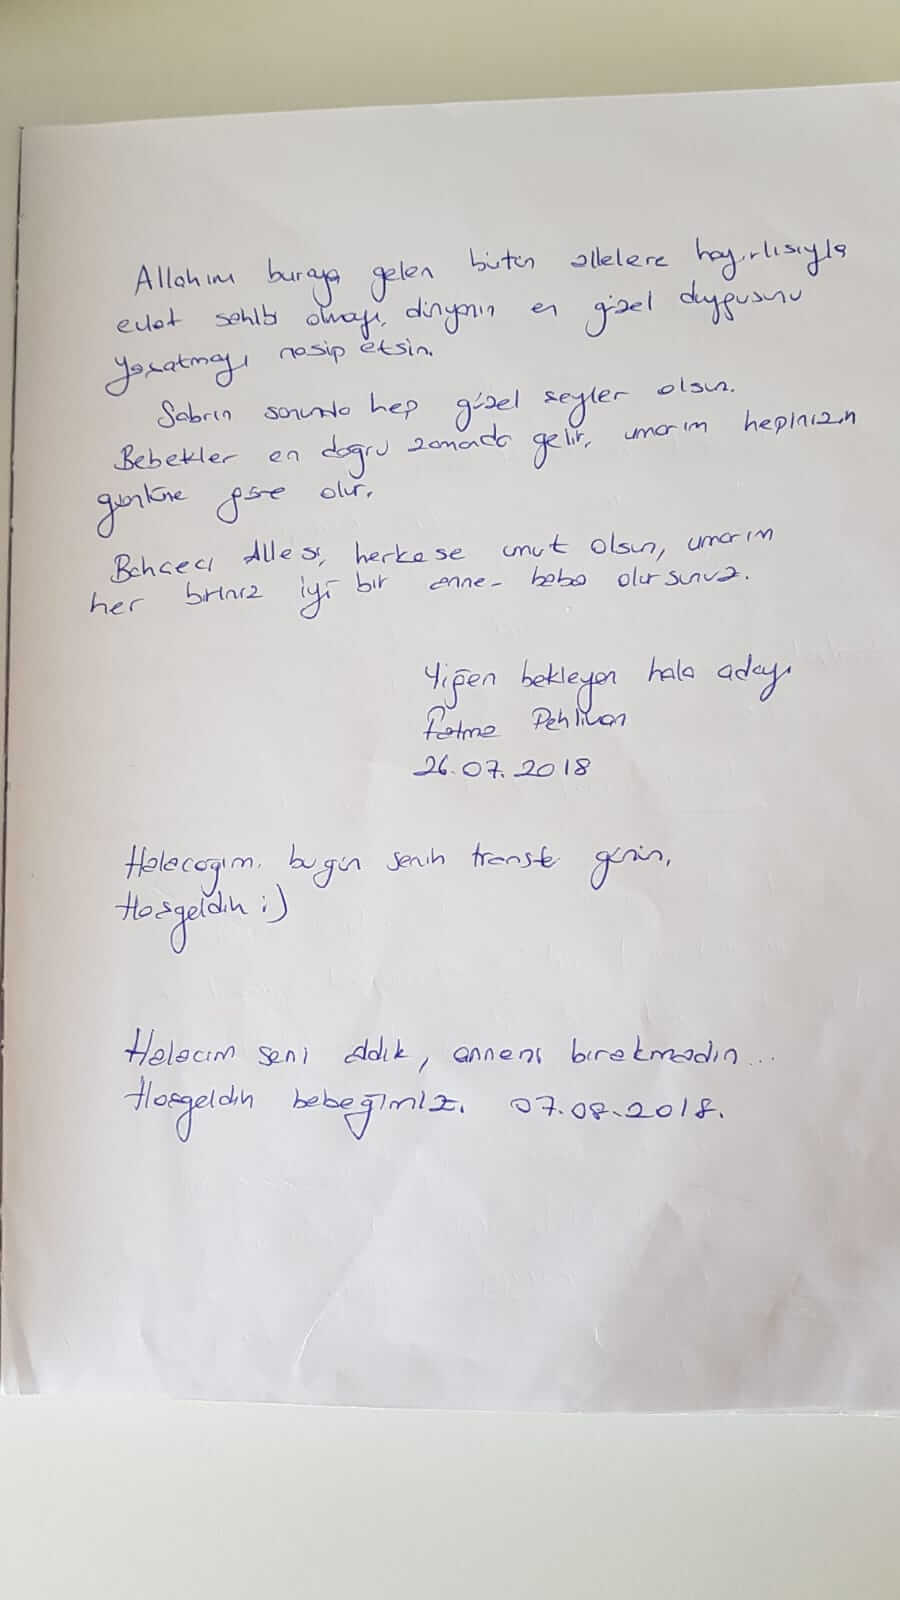 Allahım buraya gelen bütün ailelere hayırlısıyla
evlat sahibi olmayı, dünyanın en güzel duygusunu
yaşatmayı nasip etsin.
Sabrın sonunda hep güzel şeyler olsun.
Bebekler en doğru zamanda gelir, umarım hepinizin
gönlüne göre olur.
Bahçeci Ailesi, herkese umut olsun, umarım
her biriniz iyi bir anne-baba olursunuz.
Yiğen bekleyen hala adayı
Fatma Pehlivan
26.07.2018
Halacığım, bugün senin transfer günün,
Hoşgeldin :)
Halacım seni aldık, anneni bırakmadın...
Hoşgeldin bebeğimiz. 07.08.2018.